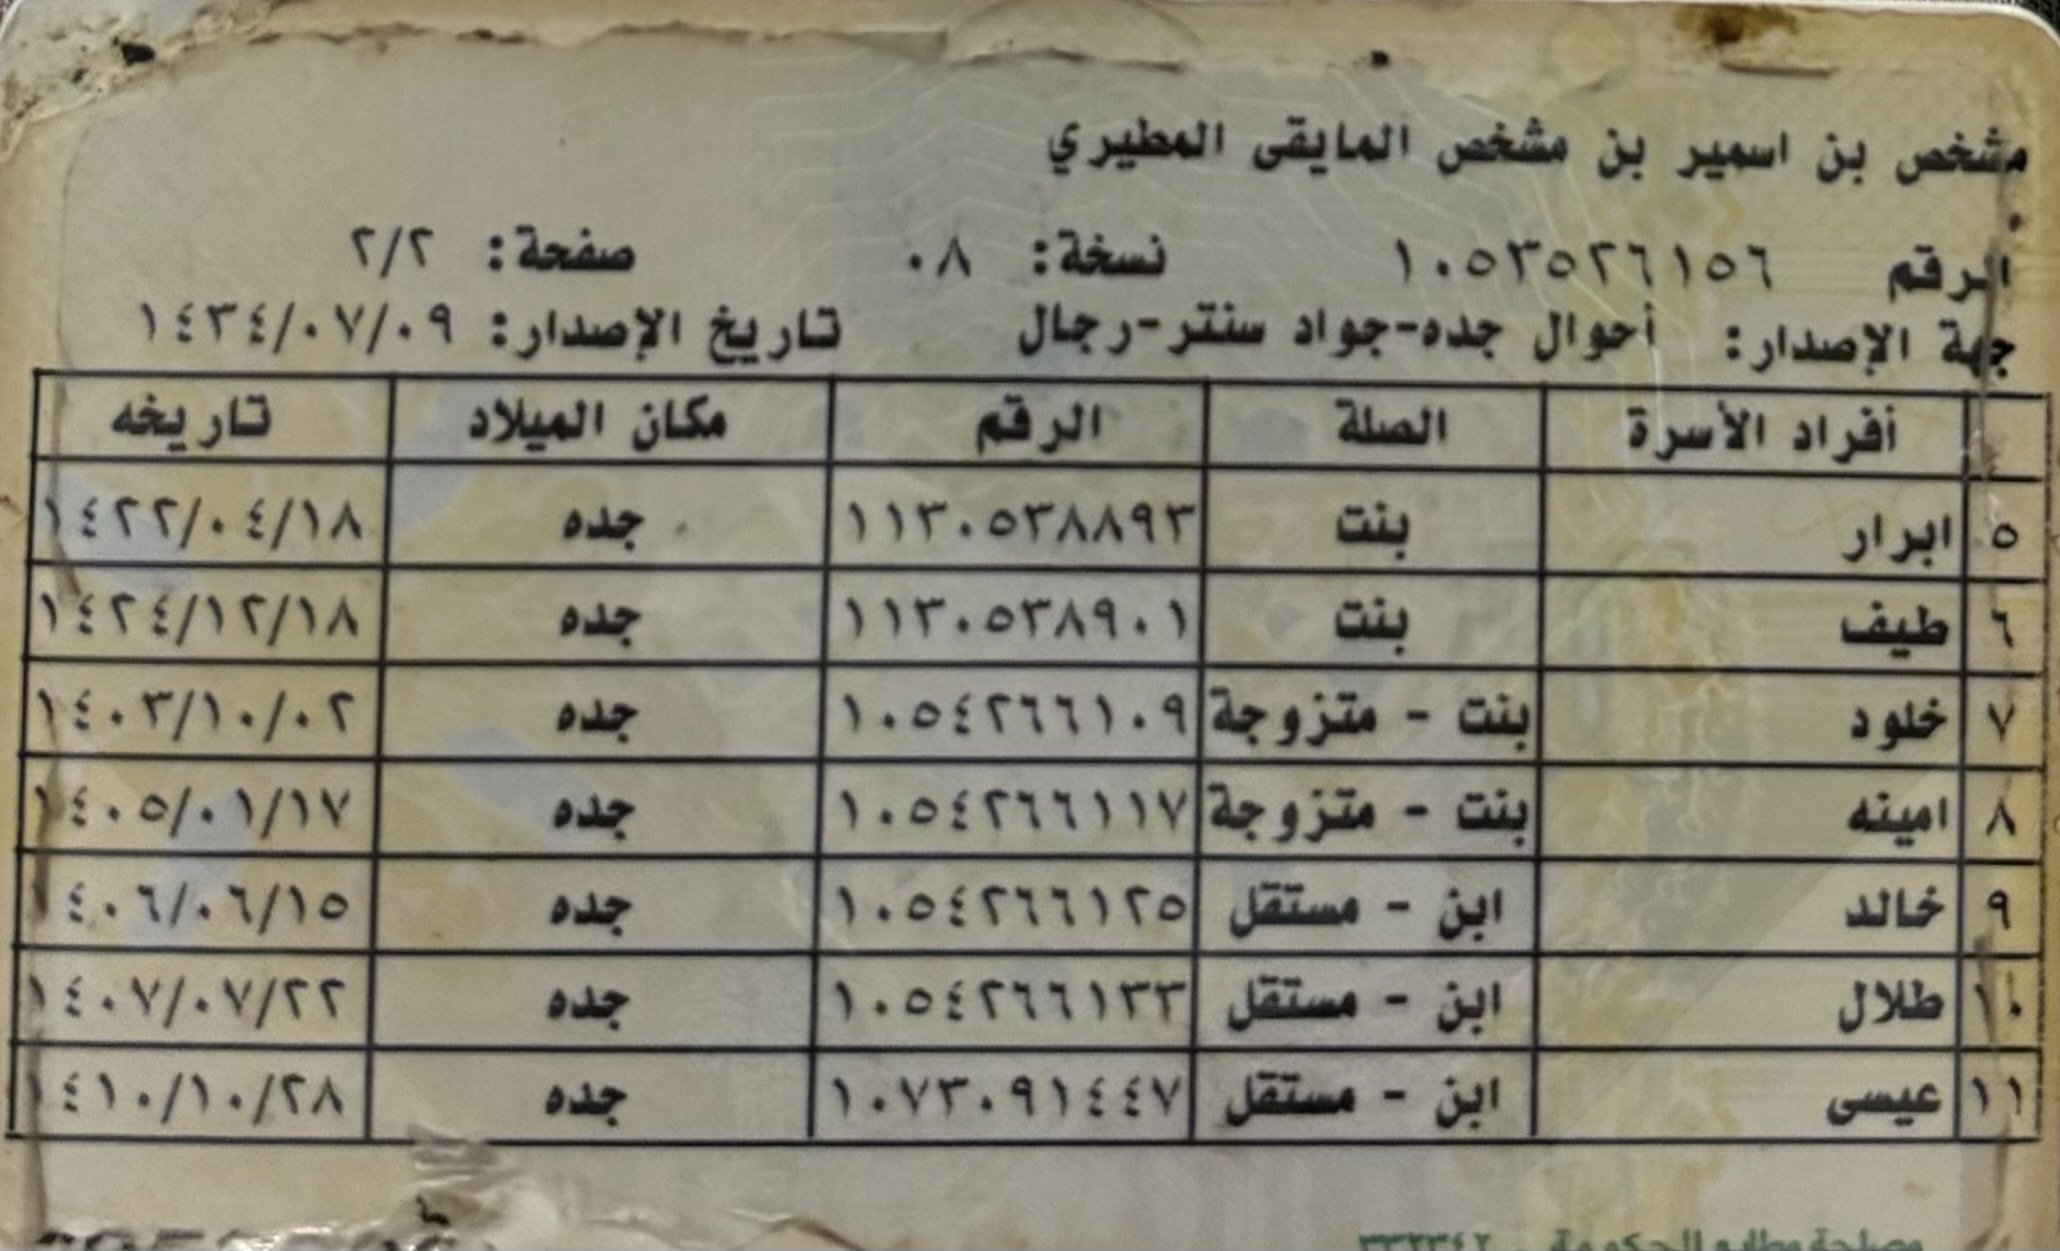 مشخص بن اسمير بن مشخص المايقى المطيري
الرقم ١٠٥٣٥٢٦١٥٦ نسخة: ٠٨ صفحة: ٢/٢
جهة الإصدار: أحوال جده-جواد سنتر-رجال تاريخ الإصدار: ١٤٣٤/٠٧/٠٩
أفراد الأسرة الصلة الرقم مكان الميلاد تاريخه
٥ ابرار بنت ١١٣٠٥٣٨٨٩٣ جده ١٤٢٢/٠٤/١٨
٦ طيف بنت ١١٣٠٥٣٨٩٠١ جده ١٤٢٤/١٢/١٨
٧ خلود بنت - متزوجة ١٠٥٤٢٦٦١٠٩ جده ١٤٠٣/١٠/٠٢
٨ امينه بنت - متزوجة ١٠٥٤٢٦٦١١٧ جده ١٤٠٥/٠١/١٧
٩ خالد ابن - مستقل ١٠٥٤٢٦٦١٢٥ جده ١٤٠٦/٠٦/١٥
١٠ طلال ابن - مستقل ١٠٥٤٢٦٦١٣٣ جده ١٤٠٧/٠٧/٢٢
١١ عيسى ابن - مستقل ١٠٧٣٠٩١٤٤٧ جده ١٤١٠/١٠/٢٨